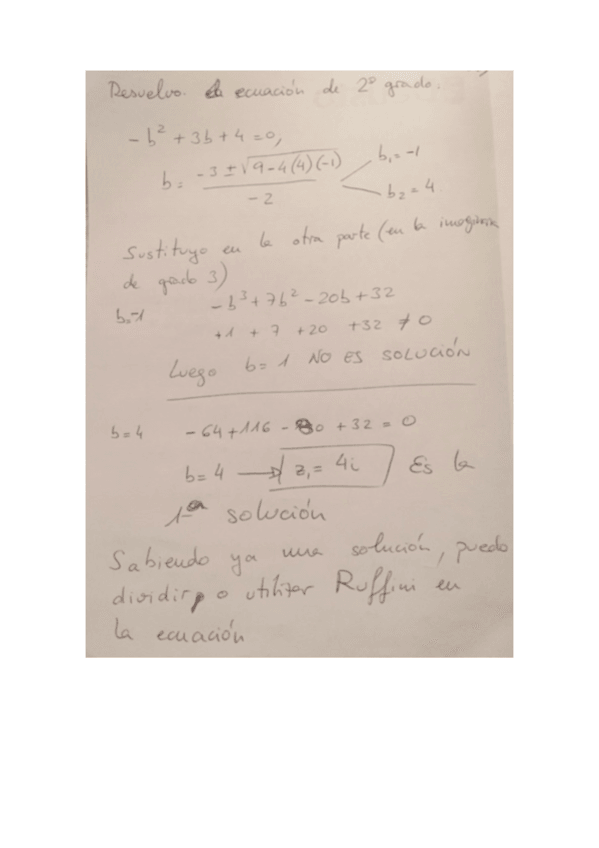 Resuelvo la ecuación de 2º grado.
-b² + 3b + 4 = 0,
b = (-3 ± √(9 - 4(4)(-1))) / -2
b₁ = -1
b₂ = 4
Sustituyo en la otra parte (en la imaginaria
de grado 3)
b=-1 -b³ + 7b² - 20b + 32
+1 + 7 + 20 + 32 ≠ 0
Luego b = 1 NO ES SOLUCIÓN
b = 4 -64 + 116 - 80 + 32 = 0
b = 4 → z₁ = 4i Es la
1ª solución
Sabiendo ya una solución, puedo
dividir o utilizar Ruffini en
la ecuación